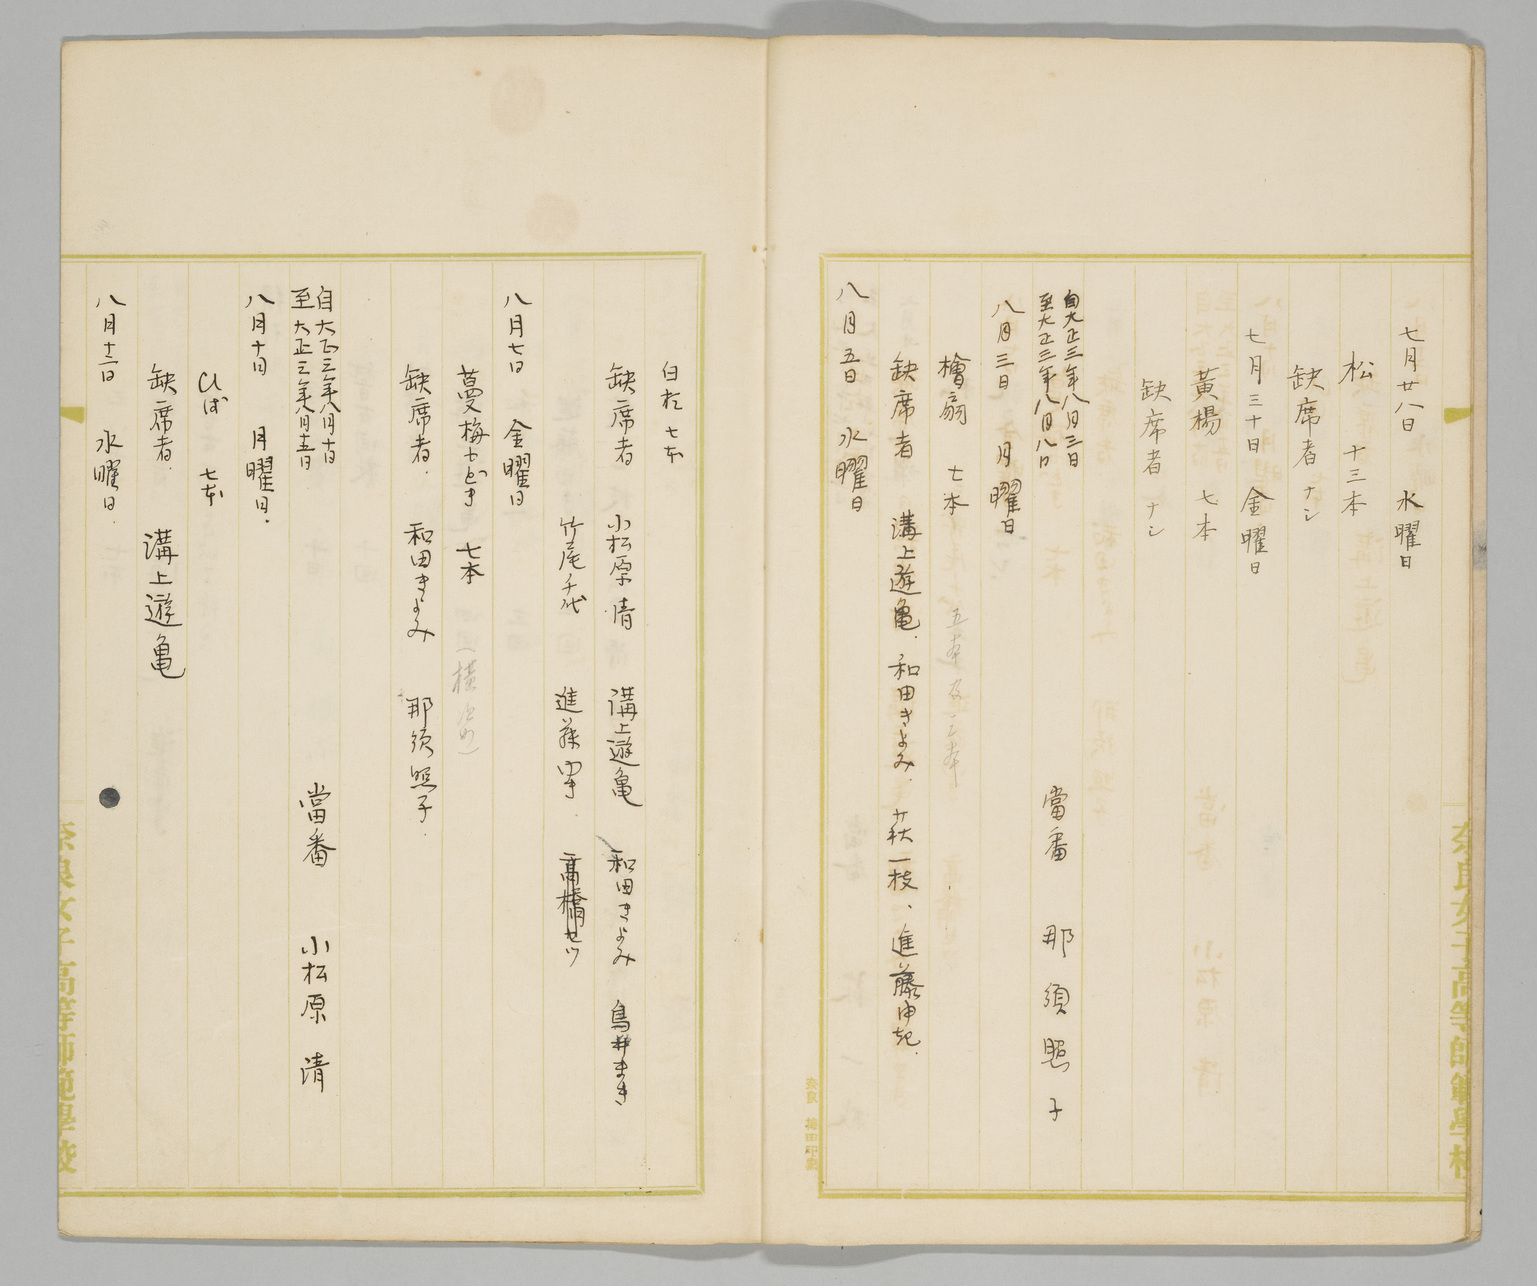 七月廿八日 水曜日
松 十三本
缺席者 ナシ
七月三十日 金曜日
黄楊 七本
缺席者 ナシ
自大正三年八月三日
至大正三年八月八日
當番 那須照子
八月三日 月曜日
檜扇 七本
五本 及 三本
缺席者 溝上遊亀. 和田きよみ. 萩一枝. 進藤
八月五日 水曜日
奈良女子高等師範學校
七本
缺席者 小松原情 溝上遊亀 和田きよみ 鳥井まき
竹尾千代 進藤 高橋セツ
八月七日 金曜日
蔓梅もどき 七本
缺席者. 和田きよみ 那須照子.
自大正三年八月十日
至大正三年八月十五日
當番 小松原 清
八月十日 月曜日.
ひば 七本
缺席者. 溝上遊亀
八月十二日 水曜日.
奈良女子高等師範學校